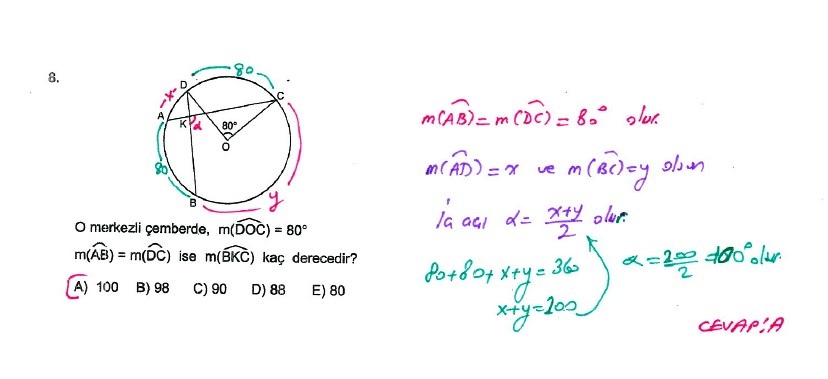 8.
80
D
C
x
A
K
α
80°
O
80
B
y
O merkezli çemberde, m(DOC) = 80°
m(AB) = m(DC) ise m(BKC) kaç derecedir?
A) 100 B) 98 C) 90 D) 88 E) 80
m(AB) = m(DC) = 80° olur.
m(AD) = x ve m(BC) = y olsun
İç açı α = x+y/2 olur.
80+80+x+y = 360
x+y = 200
α = 200/2 = 100° olur.
CEVAP: A